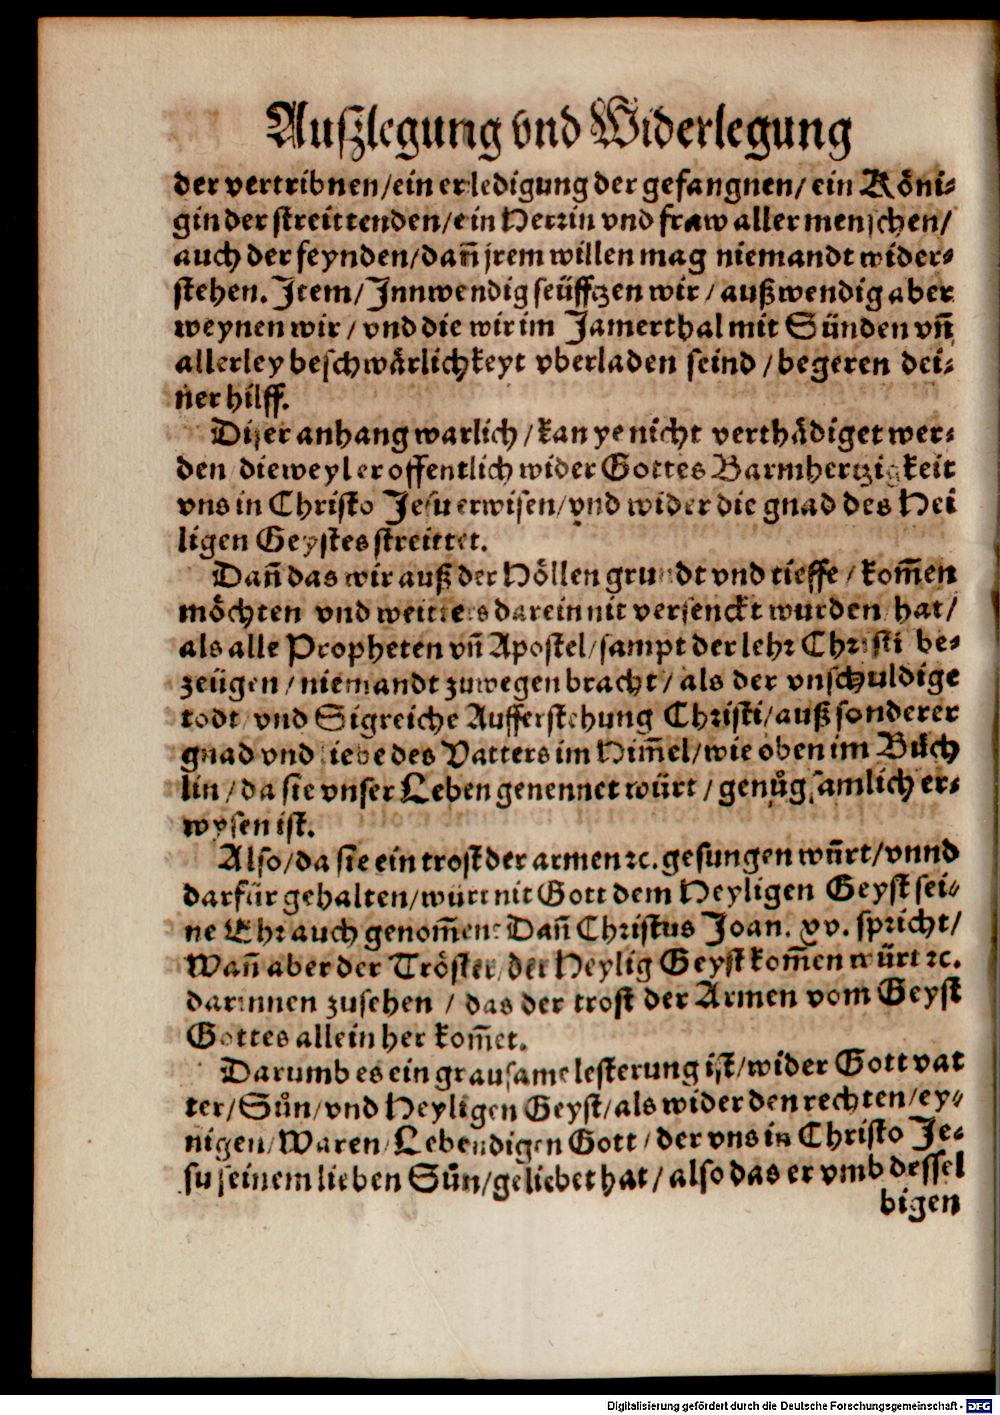 Auſzlegung vnd Widerlegung
der vertribnen/ein erledigung der gefangnen/ ein Köni⸗
gin der ſtreittenden/ein Herrin vnd fraw aller menſchen/
auch der feynden/dañ jrem willen mag niemandt wider⸗
ſtehen. Item/ Innwendig ſeüfftzen wir / außwendig aber
weynen wir / vnd die wir im Jamerthal mit Sünden vñ
allerley beſchwårlichkeyt vberladen ſeind / begeren dei⸗
ner hilff.
Diſer anhang warlich / kan ye nicht verthådiget wer⸗
den dieweyl er offentlich wider Gottes Barmhertzigkeit
vns in Chriſto Jeſu erwiſen/vnd wider die gnad des Hei
ligen Geyſtes ſtreittet.
Dañ das wir auß der Höllen grundt vnd tieffe / kom̃en
möchten vnd weitters darein nit verſenckt wurden hat/
als alle Propheten vñ Apoſtel/ſampt der lehr Chriſti be⸗
zeügen / niemandt zuwegen bracht / als der vnſchuldige
todt vnd Sigreiche Aufferſtehung Chriſti/auß ſonderer
gnad vnd liebe des Vatters im Him̃el/wie oben im Bůch
lin / da ſie vnſer Leben genennet würt / genůgſamlich er⸗
wyſen iſt.
Alſo/da ſie ein troſt der armen ꝛc. geſungen würt/vnnd
darfür gehalten/würt nit Gott dem Heyligen Geyſt ſei⸗
ne Ehr auch genom̃en: Dañ Chriſtus Joan. xv. ſpricht/
Wañ aber der Tröſter/der Heylig Geyſt kom̃en würt ꝛc.
darinnen zuſehen / das der troſt der Armen vom Geyſt
Gottes allein her kom̃et.
Darumb es ein grauſame leſterung iſt/wider Gott vat
ter/Sůn/vnd Heyligen Geyſt/als wider den rechten/ey⸗
nigen/Waren/Lebendigen Gott / der vns in Chriſto Je⸗
ſu ſeinem lieben Sůn/geliebet hat / alſo das er vmb deſſel
bigen
Digitalisierung gefördert durch die Deutsche Forschungsgemeinschaft - DFG